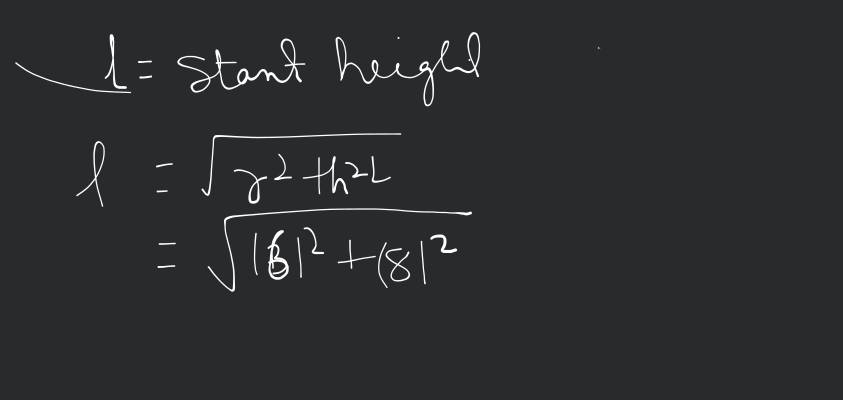 l = Slant height
l = √r² + h²
= √(6)² + (8)²